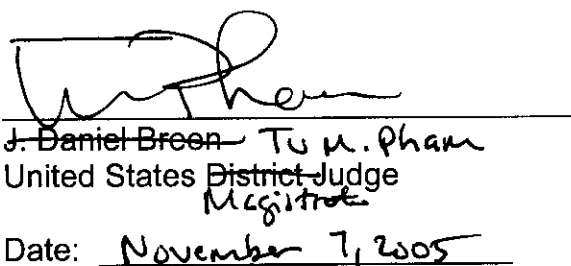 Tu Pham
J. Daniel Breen Tu M. Pham
United States District Judge
Magistrate
Date: November 7, 2005